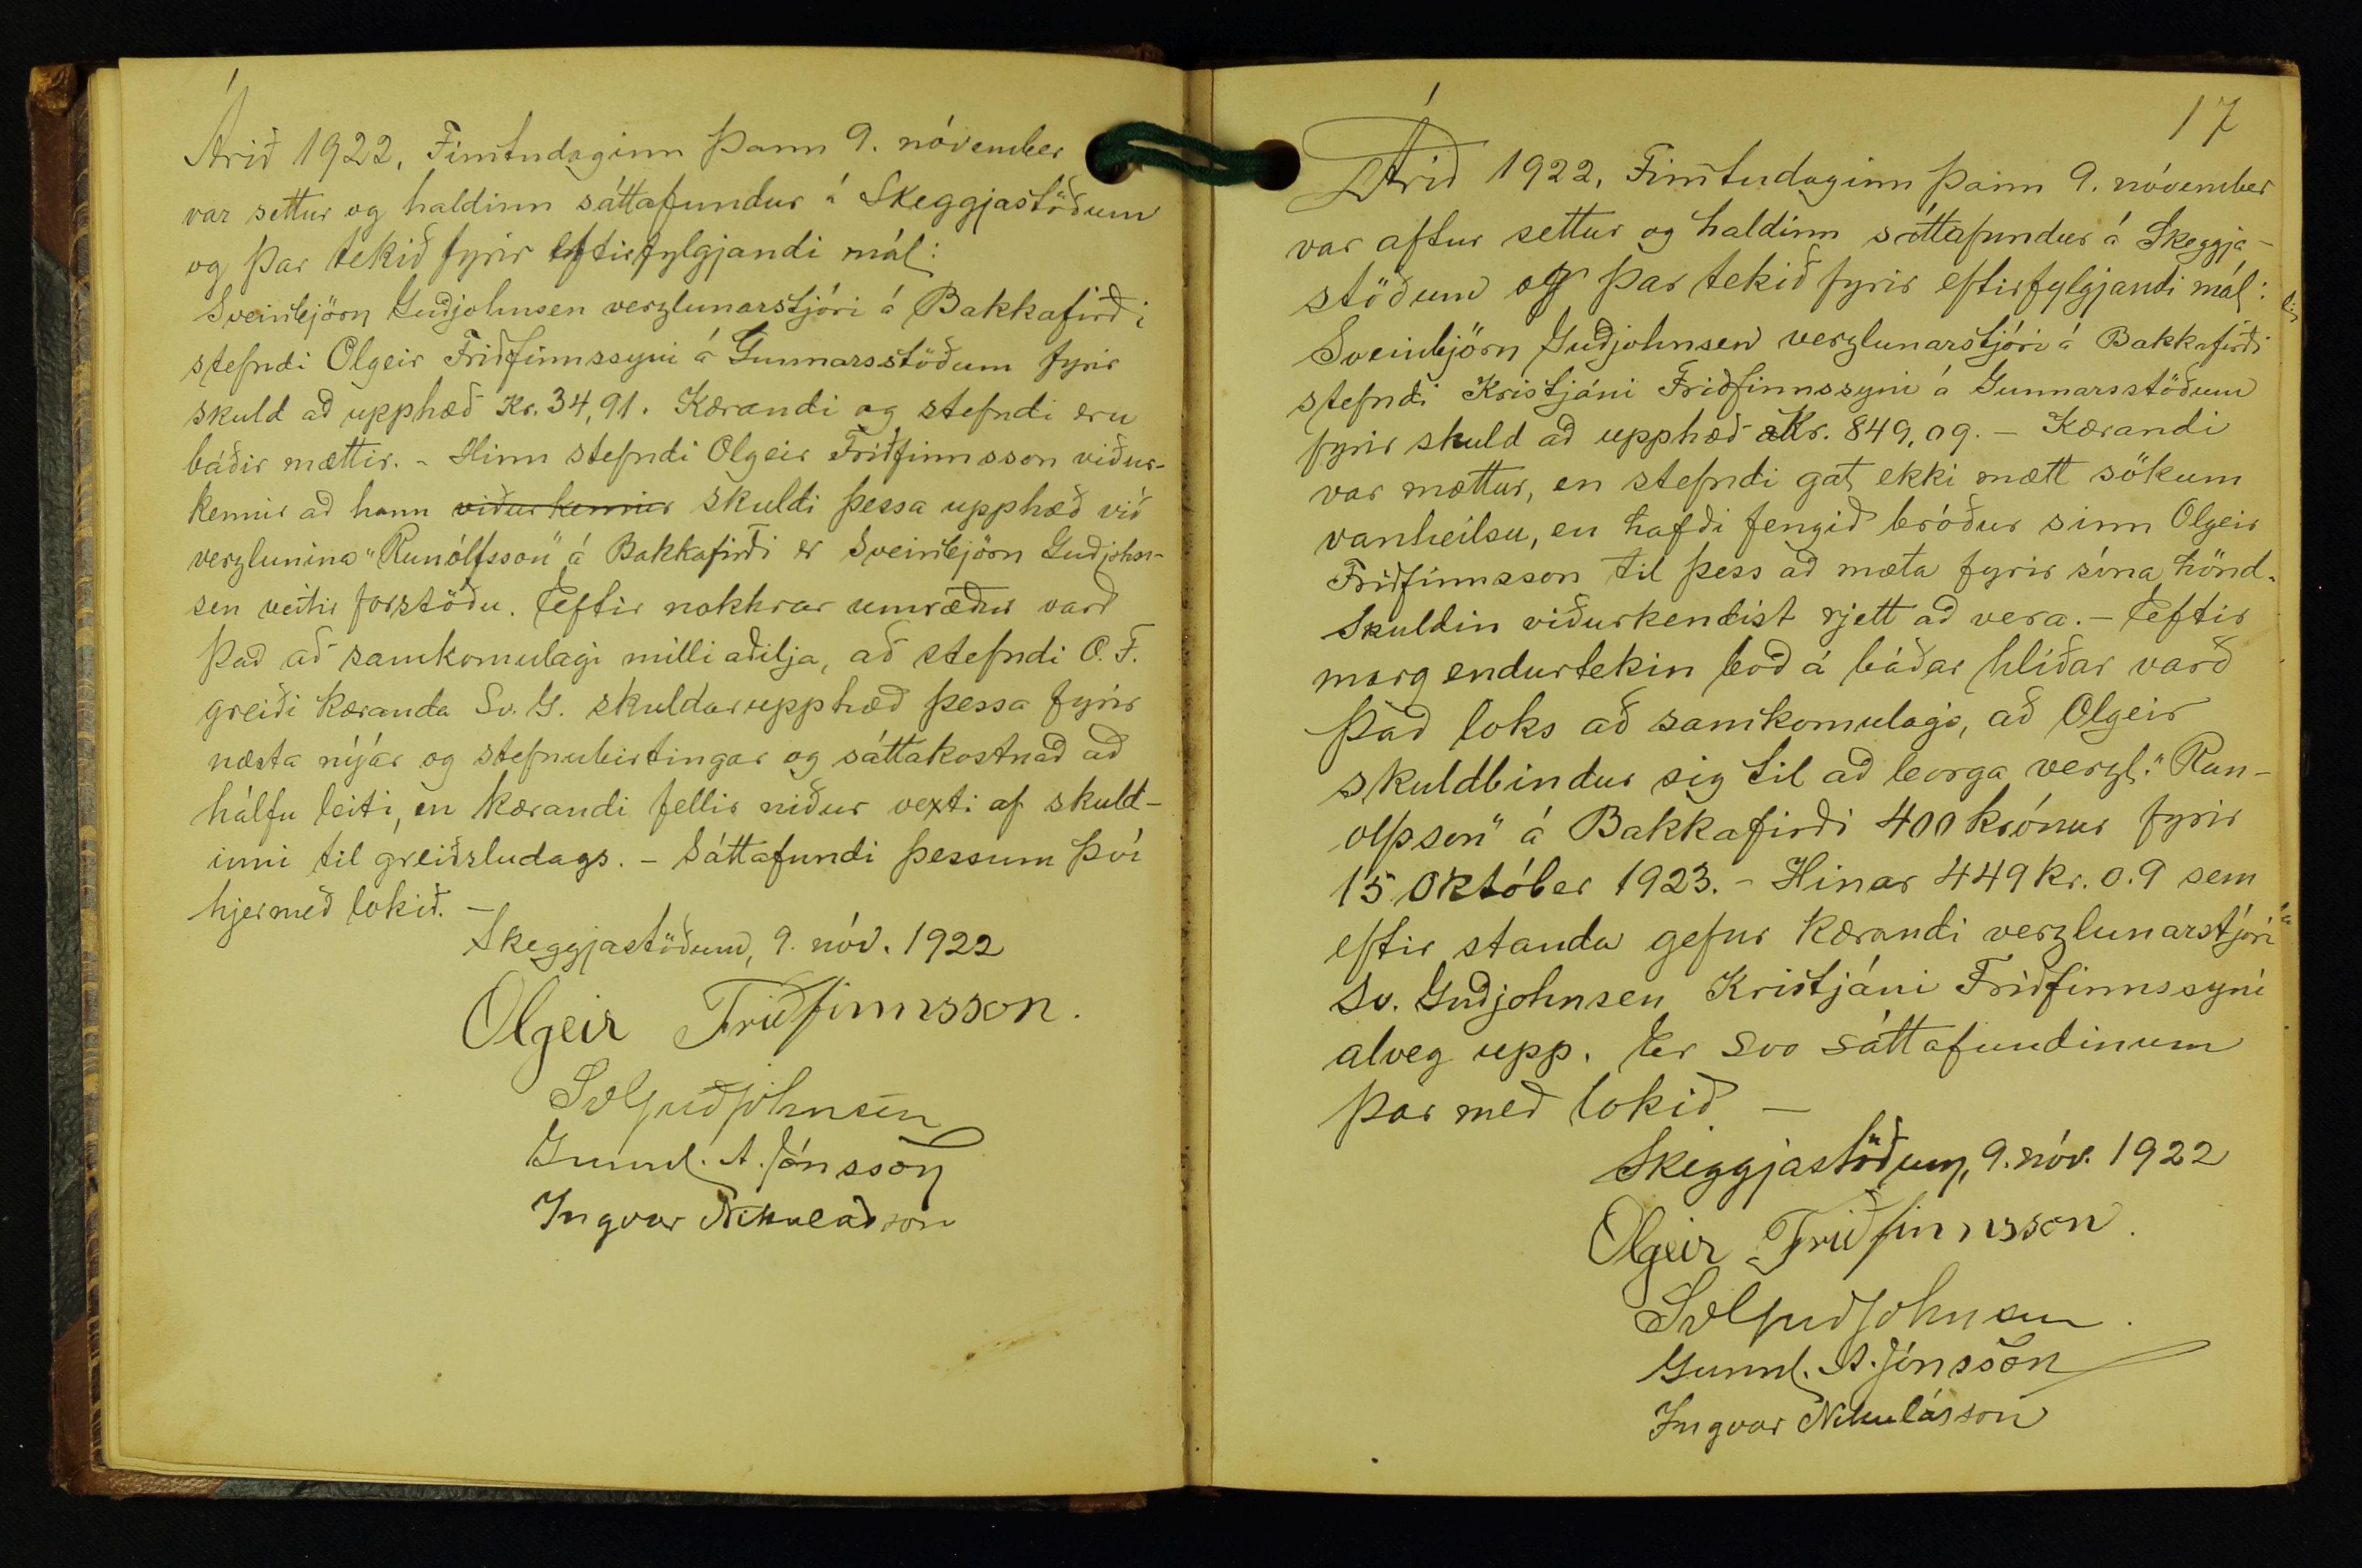 Árið 1922, Fimtudaginn þann 9. nóvember
var settur og haldinn sáttafundur á Skeggjastöðum
og þar tekið fyrir eftirfylgjandi mál:
Sveinbjörn Guðjohnsen verzlunarstjóri á Bakkafirði
stefndi Olgeir Friðfinnssyni á Gunnarsstöðum fyrir
skuld að upphæð Kr. 34,91. Kærandi og stefndi eru
báðir mættir. - Hinn stefndi Olgeir Friðfinnsson viður-
kennir að hann viðurkennir skuldi þessa upphæð við
verzlunina "Runólfsson" á Bakkafirði er Sveinbjörn Guðjohn-
sen veitir forstöðu. Eftir nokkrar umræður varð
það að samkomulagi milli aðilja, að stefndi O. F.
greiði kæranda Sv. G. skuldarupphæð þessa fyrir
næsta nýjár og stefnubirtingar og sáttakostnað að
hálfu leiti, en kærandi fellir niður vexti af skuld-
inni til greiðsludags. - Sáttafundi þessum því
hjermeð lokið. -
Skeggjastöðum, 9. nóv. 1922
Olgeir Friðfinnsson.
SvGuðjohnsen
Gunnl. A. Jónsson
Ingvar Nikulásson
17
Árið 1922, Fimtudaginn þann 9. nóvember
var aftur settur og haldinn sáttafundur á Skeggja-
stöðum og þar tekið fyrir eftirfylgjandi mál:
Sveinbjörn Guðjohnsen verzlunarstjóri á Bakkafirði
stefndi Kristjáni Friðfinnssyni á Gunnarsstöðum
fyrir skuld að upphæð Kr. 849,09. - Kærandi
var mættur, en stefndi gat ekki mætt sökum
vanheilsu, en hafði fengið bróður sinn Olgeir
Friðfinnsson til þess að mæta fyrir sína hönd.
Skuldin viðurkendist rjett að vera. - Eftir
marg endurtekin boð á báðar hliðar varð
það loks að samkomulagi, að Olgeir
skuldbindur sig til að borga verzl. "Run-
olfsson" á Bakkafirði 400 krónur fyrir
15 Október 1923. - Hinar 449 kr. 0.9 sem
eftir standa gefur kærandi verzlunarstjóri
Sv. Guðjohnsen Kristjáni Friðfinnssyni
alveg upp. Er svo sáttafundinum
þar með lokið -
Skeggjastöðum, 9. nóv. 1922
Olgeir Friðfinnsson.
SvGuðjohnsen.
Gunnl. A. Jónsson
Ingvar Nikulásson